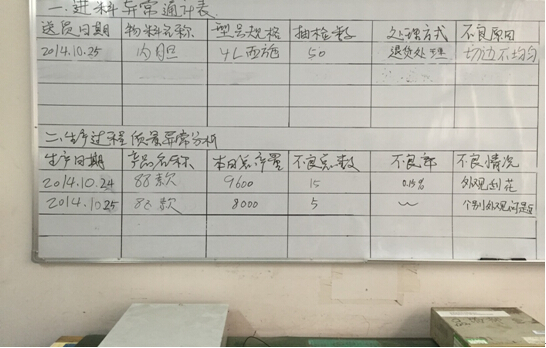 一.进料异常通计表.
送货日期 物料名称 型号规格 抽检数 处理方式 不良原因
2014.10.25 内胆 4L西施 50 退货处理 切边不均匀
二.生产过程质量异常分析
生产日期 产品名称 本日总产量 不良总数 不良率 不良情况
2014.10.24 88款 9600 15 0.15% 外观刮花
2014.10.25 88款 8000 5 ~ 个别外观问题